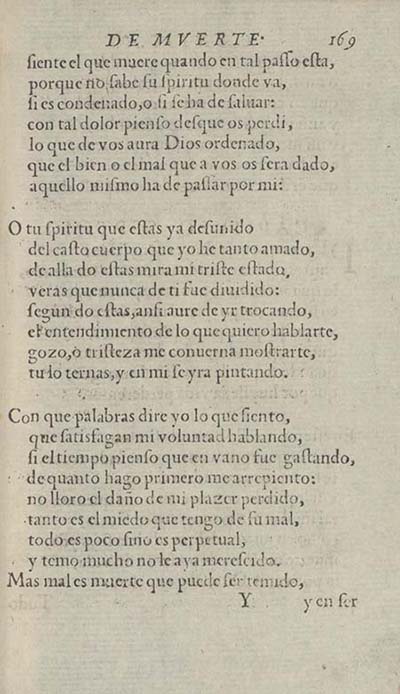 DE MVERTE· 169
siente el que muere quando en tal passo esta,
porque no sabe su spiritu donde va,
si es condenado, o si se ha de saluar:
con tal dolor pienso desque os perdi,
lo que de vos aura Dios ordenado,
que el bien o el mal que a vos os sera dado,
aquello mismo ha de passar por mi:
O tu spiritu que estas ya desunido
del casto cuerpo que yo he tanto amado,
de alla do estas mira mi triste estado,
veras que nunca de ti fue diuidido:
segun do estas, ansi aure de yr trocando,
el entendimiento de lo que quiero hablarte,
gozo, o tristeza me conuerna mostrarte,
tu lo ternas, y en mi se yra pintando.
Con que palabras dire yo lo que siento,
que satisfagan mi voluntad hablando,
si el tiempo pienso que en vano fue gastando,
de quanto hago primero me arrepiento:
no lloro el daño de mi plazer perdido,
tanto es el miedo que tengo de su mal,
todo es poco sino es perpetual,
y temo mucho no le aya merescido.
Mas mal es muerte que puede ser temido,
Y y en ser